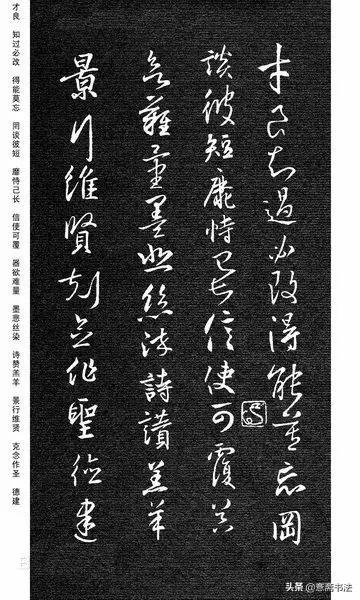 才良知過必改得能莫忘罔
談彼短靡恃己長信使可覆器
欲難量墨悲絲染詩讚羔羊
景行維賢剋念作聖德建
才良 知过必改 得能莫忘 罔谈彼短 靡恃己长 信使可覆 器欲难量 墨悲丝染 诗赞羔羊 景行维贤 克念作圣 德建
头条 @意斋书法